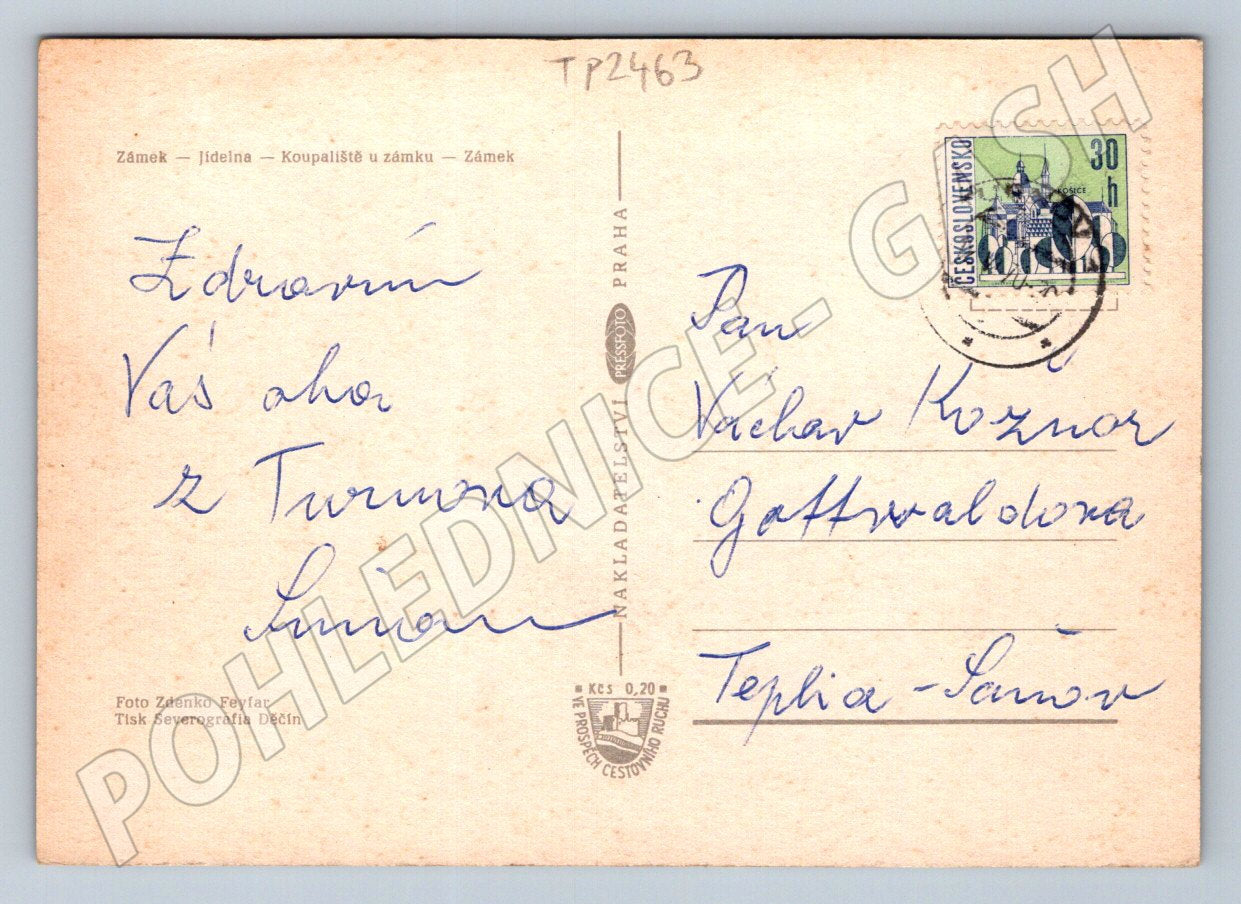 TP2463
Zámek — Jídelna — Koupaliště u zámku — Zámek
ČESKOSLOVENSKO
30 h
KOŠICE
Zdravím
Váš
z Turnova
NAKLADATELSTVÍ PRESSFOTO PRAHA
Pan
Váchav
Gottwaldova
Teplia - Šanov
Foto Zdenko Feyfar
Tisk Severografia Děčín
Kčs 0,20
VE PROSPĚCH CESTOVNÍHO RUCHU
POHLEDNICE - G SH